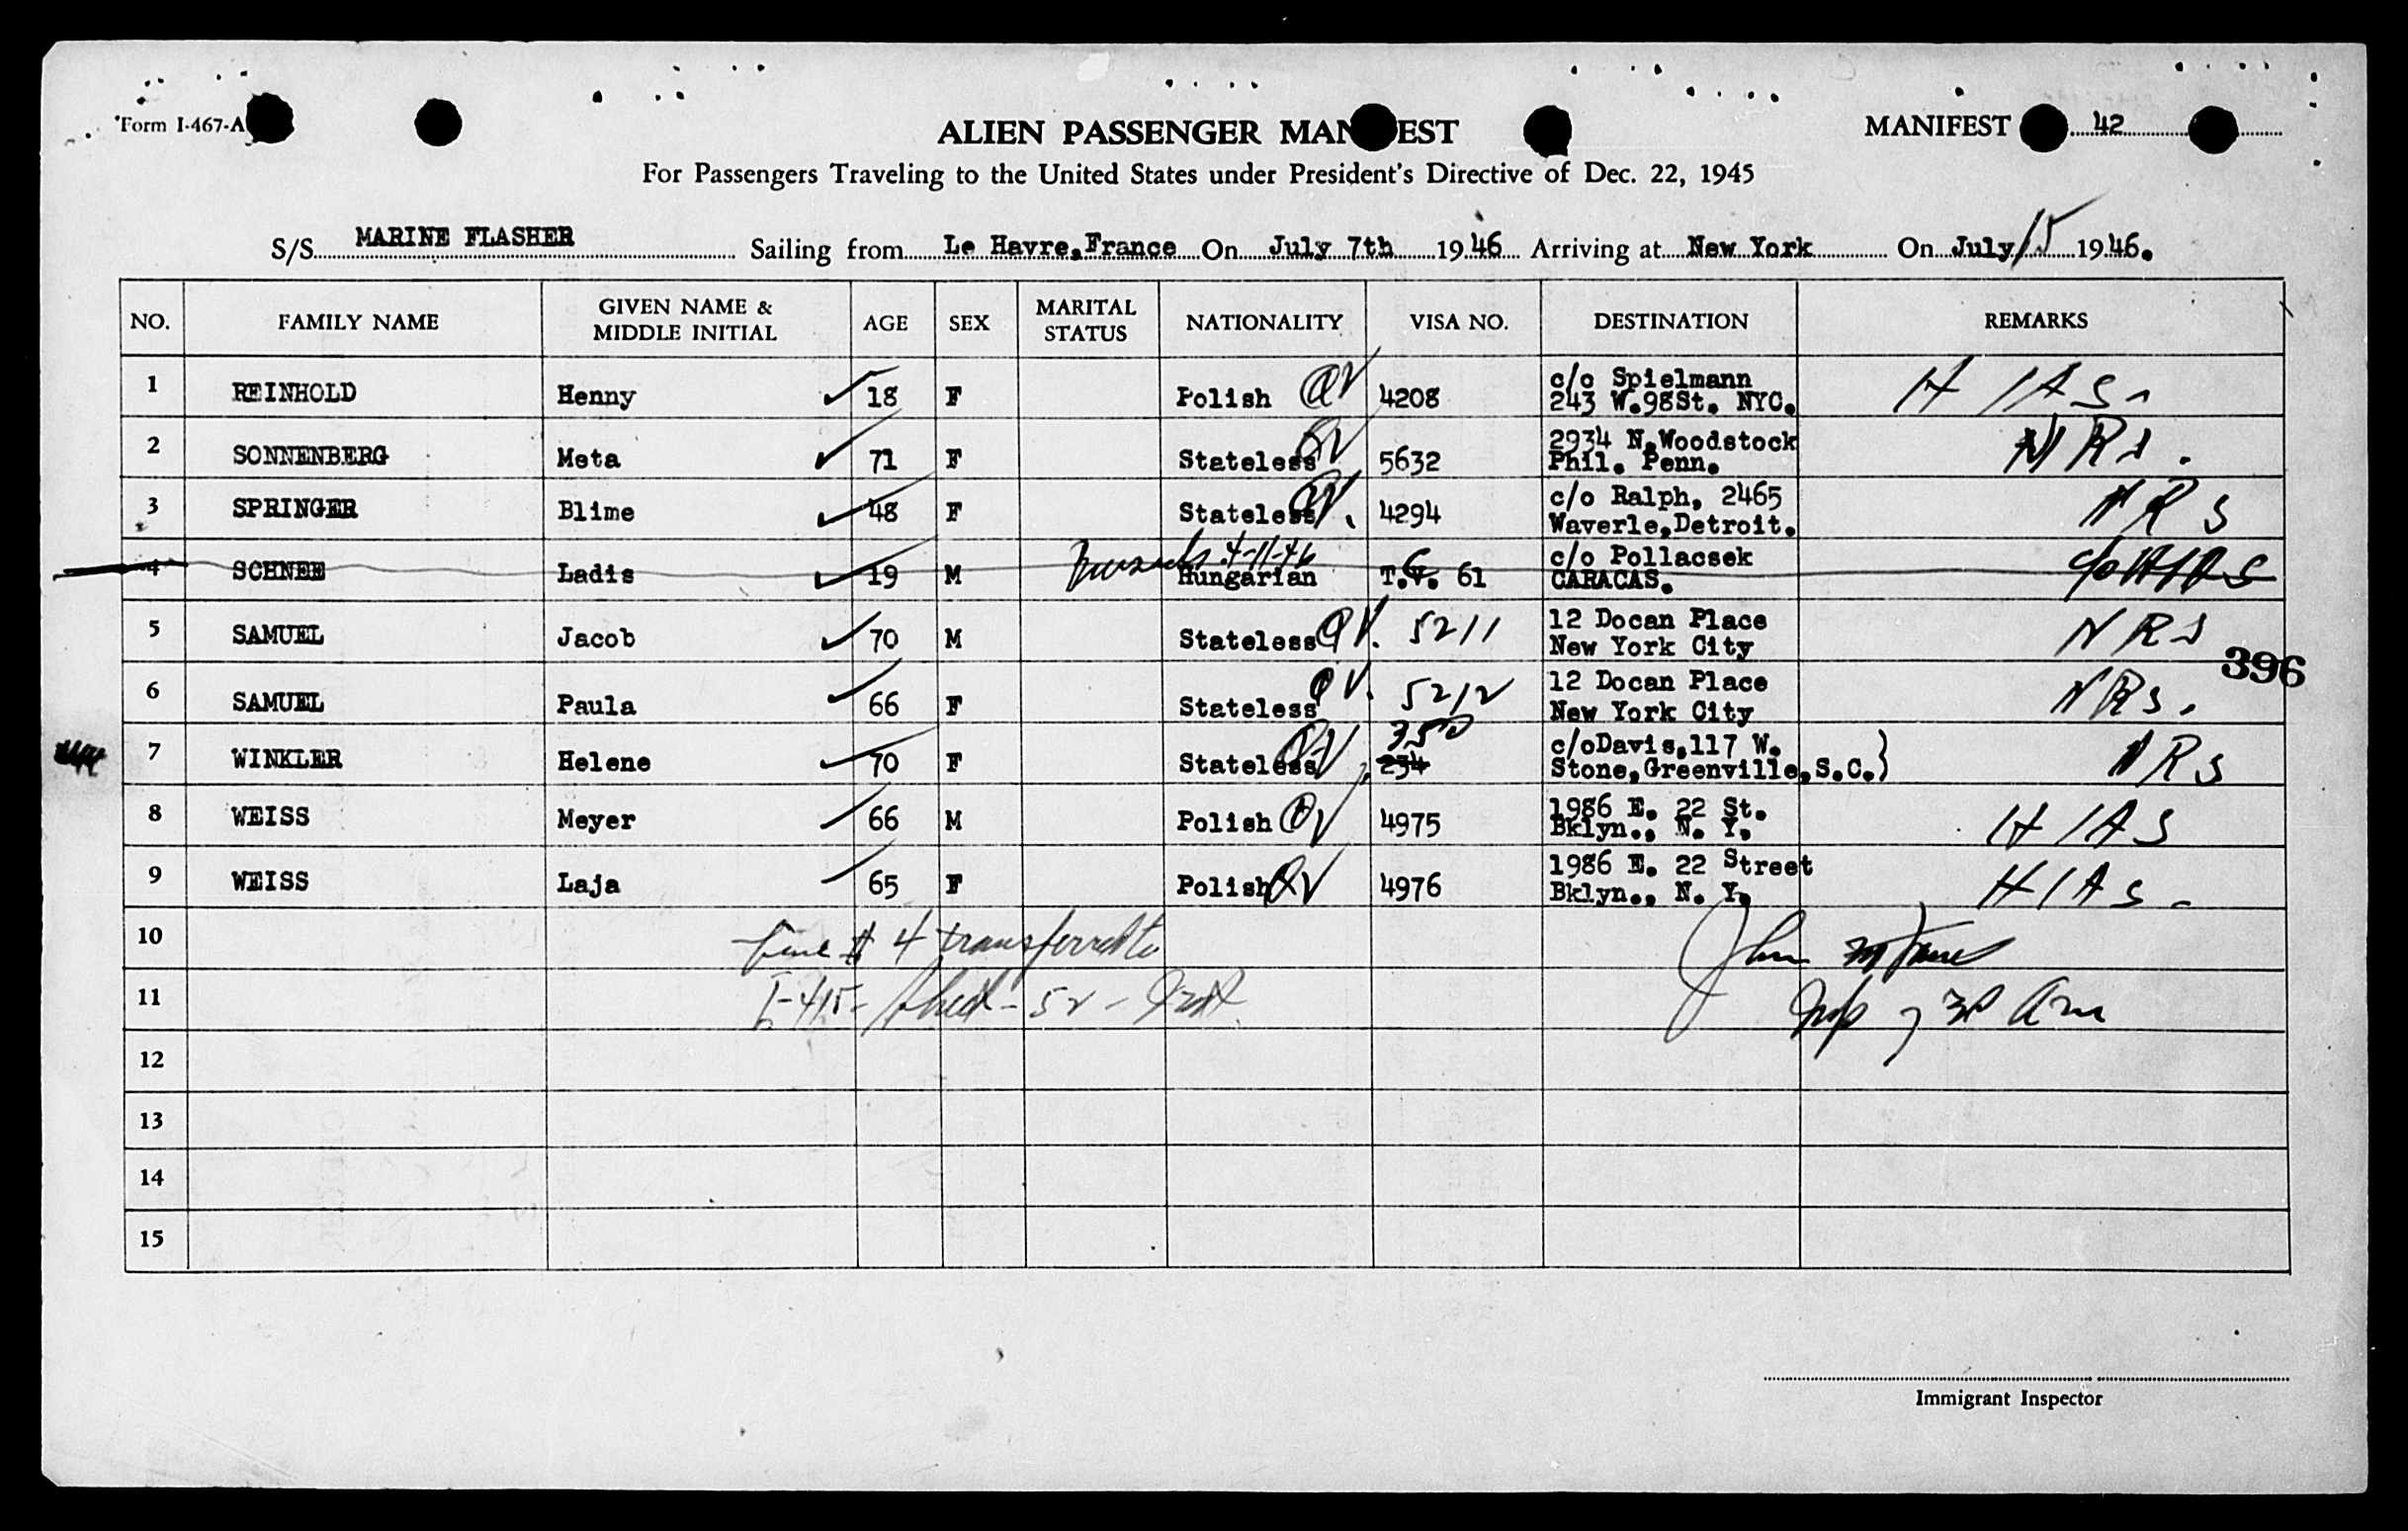 Form I-467-A
ALIEN PASSENGER MAN EST
MANIFEST 42
For Passengers Traveling to the United States under President's Directive of Dec. 22, 1945
S/S MARINE FLASHER Sailing from Le Havre, France On July 7th 1946 Arriving at New York On July 15 1946.
NO. FAMILY NAME GIVEN NAME & MIDDLE INITIAL AGE SEX MARITAL STATUS NATIONALITY VISA NO. DESTINATION REMARKS
1 REINHOLD Henny 18 F Polish QV 4208 c/o Spielmann 243 W.98St. NYC. HIAS.
2 SONNENBERG Meta 71 F Stateless QV 5632 2934 N.Woodstock Phil. Penn. NRS.
3 SPRINGER Blime 48 F Stateless QV. 4294 c/o Ralph, 2465 Waverle,Detroit. NRS
4 SCHNEE Ladis 19 M Brussels 4-11-46 Hungarian T.V. 61 c/o Pollacsek CARACAS. c/o HIAS
5 SAMUEL Jacob 70 M Stateless QV. 5211 12 Docan Place New York City NRS
396
6 SAMUEL Paula 66 F Stateless QV. 5212 12 Docan Place New York City NRS.
7 WINKLER Helene 70 F Stateless QV 350 234 c/oDavis,117 W. Stone,Greenville,S.C.) NRS
8 WEISS Meyer 66 M Polish QV 4975 1986 E. 22 St. Bklyn., N. Y. HIAS
9 WEISS Laja 65 F Polish QV 4976 1986 E. 22 Street Bklyn., N. Y. HIAS-
10 Line # 4 transferred to John
11 I-415- Sheet-52-
12
13
14
15
Immigrant Inspector